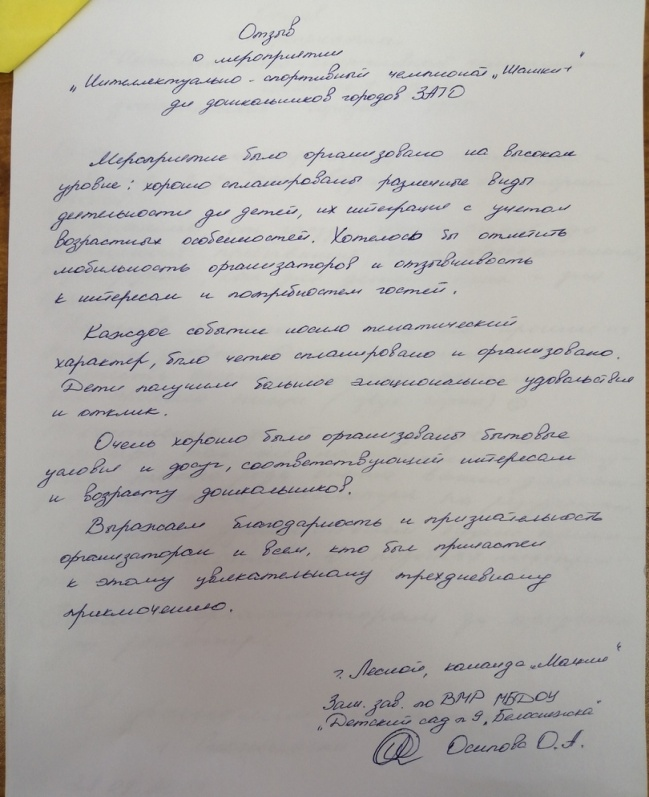 Отзыв
о мероприятии
„Интеллектуально-спортивный чемпионат „Шашки+"
для дошкольников городов ЗАТО
Мероприятие было организовано на высоком
уровне: хорошо спланированы различные виды
деятельности для детей, их интеграция с учетом
возрастных особенностей. Хотелось бы отметить
мобильность организаторов и отзывчивость
к интересам и потребностям гостей.
Каждое событие носило тематический
характер, было четко спланировано и организовано.
Дети получили большое эмоциональное удовольствие
и отклик.
Очень хорошо были организованы бытовые
условия и досуг, соответствующий интересам
и возрасту дошкольников.
Выражаем благодарность и признательность
организаторам и всем, кто был причастен
к этому увлекательному трехдневному
приключению.
г. Лесной, команда
Зам. зав. по ВМР МБДОУ
„Детский сад № 9 „Белоснежка"
Осипова О.А.